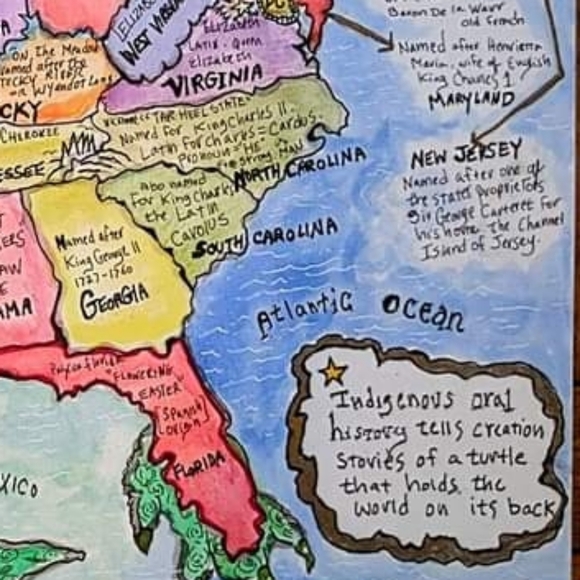 Baron De la Warr
old french
Named after Henrietta
Maria, wife of English
King Charles 1
MARYLAND
NEW JERSEY
Named after one of
the states proprietors
Sir George Carteret for
his home The Channel
Island of Jersey.
ELIZABETH
WEST VIRGINIA
ELIZABETH
LATIN - Queen
Elizabeth
VIRGINIA
ON The Meadow
named after the
KY
TAR HEEL STATE
Named for King Charles II.
Latin for Charles = Carolus
NORTH CAROLINA
CHEROKEE
ESSEE
also named
For King Charles
the Latin
Carolus
SOUTH CAROLINA
Named after
King George II
1727-1760
GEORGIA
AMA
Atlantic Ocean
"FLOWERING
EASTER"
(Spanish)
Origin
FLORIDA
XICO
Indigenous oral
history tells creation
stories of a turtle
that holds the
world on its back